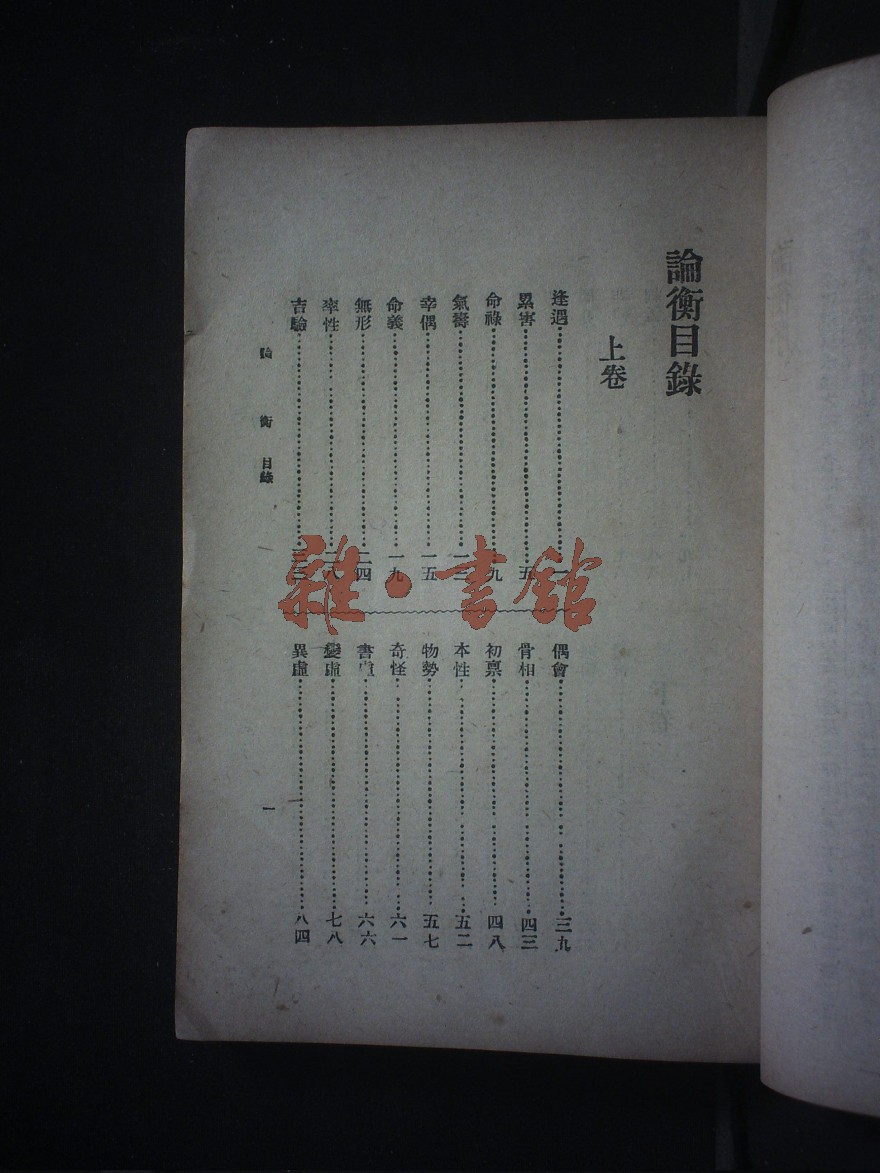 論衡目錄
上卷
逢遇……一
累害……五
命祿……九
氣壽……一三
幸偶……一五
命義……一九
無形……二四
率性……二八
吉驗……三三
偶會……三九
骨相……四三
初稟……四八
本性……五二
物勢……五七
奇怪……六一
書虛……六六
變虛……七八
異虛……八四
論衡 目錄
一
雜·書館